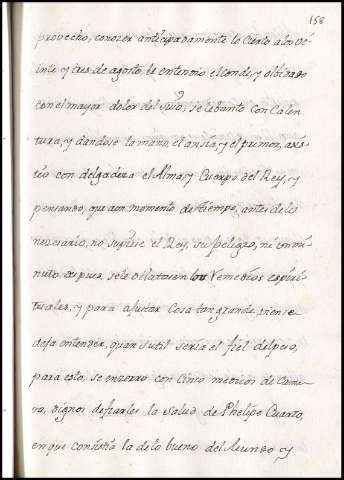 158
provecho, conocer anticipadamente lo cierto a los ve
inte y tres de agosto le entendio el conde, y obligado
con el mayor dolor del suio, se lebanto con Calen
tura, y dandose la mano, el ansia, y el primor, asis
tió con delgadeza el Alma, y Cuerpo del Rey, y
pensando, que aun momento de tiempo, antes de lo
necesario, no supiese el Rey, su peligro, ni con mi
nuto despues, se le dilatasen los remedios espiri
tuales, y para ajustar Cosa tan grande, 
deja entender, quan sutil seria el fiel del peso,
para esto, se enzerro con Cinco medicos de Cama
ra, dignos de fiarles la salud de Phelipe Quarto,
en que consistia la de lo bueno del Mundo y